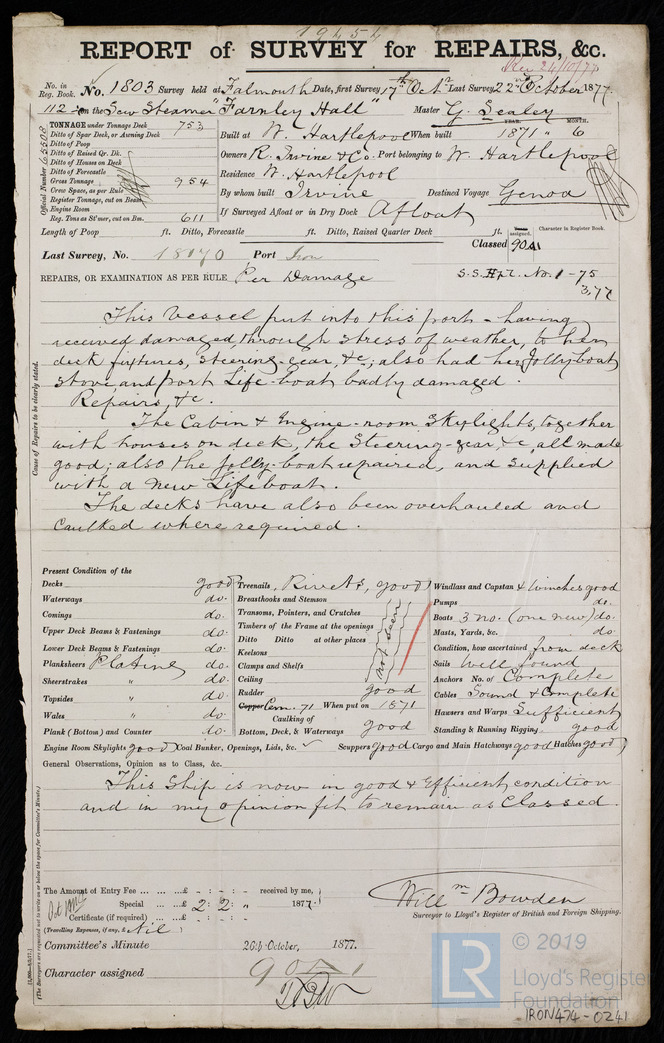 19454
REPORT of SURVEY for REPAIRS, &c.
Rec 24/10/77
No. in Reg. Book. No. 1803 Survey held at Falmouth Date, first Survey 17th Octr Last Survey 22nd October 1877
112 on the Screw Steamer "Farnley Hall" Master G. Sealey
TONNAGE under Tonnage Deck 753
Ditto of Spar Deck, or Awning Deck
Ditto of Poop
Ditto of Raised Qr. Dk.
Ditto of Houses on Deck
Ditto of Forecastle
Gross Tonnage 954
Crew Space, as per Rule
Register Tonnage, cut on Beam
Engine Room
Reg. Tons as St'mer, cut on Bm. 611
Official Number 65508
YEAR. MONTH.
Built at W. Hartlepool When built 1871 " 6
Owners R. Irvine & Co. Port belonging to W. Hartlepool
Residence W. Hartlepool
By whom built Irvine Destined Voyage Genoa
If Surveyed Afloat or in Dry Dock Afloat
Length of Poop ft. Ditto, Forecastle ft. Ditto, Raised Quarter Deck ft.
Years assigned. Character in Register Book.
Last Survey, No. 18170 Port Iron Classed 90A1
REPAIRS, OR EXAMINATION AS PER RULE Per Damage S.S. Hpl. No. 1-75
3,77
Cause of Repairs to be clearly stated.
This Vessel put into this port - having
received damaged, through stress of weather, to her
deck fixtures, steering-gear, &c; also had her Jolly-boat
stove, and port Life-boat badly damaged.
Repairs, &c.
The Cabin & Engine-room Skylights, together
with houses on deck, the Steering-gear, &c, all made
good; also the jolly-boat repaired, and supplied
with a new Lifeboat.
The decks have also been overhauled and
caulked where required.
Present Condition of the
Decks good
Waterways do.
Comings do.
Upper Deck Beams & Fastenings do.
Lower Deck Beams & Fastenings do.
Planksheers Plating do.
Sheerstrakes " do.
Topsides " do.
Wales " do.
Plank (Bottom) and Counter do.
Treenails, Rivets, good
Breasthooks and Stemson
Transoms, Pointers, and Crutches
Timbers of the Frame at the openings
Ditto Ditto at other places
Keelsons
Clamps and Shelfs
Ceiling
not seen
Rudder good
Copper Cem. 71 When put on 1871
Caulking of
Bottom, Deck, & Waterways good
Windlass and Capstan & Winches good
Pumps do.
Boats 3 no. (one new) do.
Masts, Yards, &c. do
Condition, how ascertained from deck
Sails Well found
Anchors No. of Complete
Cables Sound & Complete
Hausers and Warps Sufficient
Standing & Running Rigging good
Engine Room Skylights good Coal Bunker, Openings, Lids, &c. ✓ Scuppers good Cargo and Main Hatchways good Hatches good
General Observations, Opinion as to Class, &c.
This Ship is now in good & Efficient condition
and in my opinion fit to remain as Classed.
The Amount of Entry Fee ... ... ...£ - : - : - received by me,
Special ... ...£ 2 : 2 : " 1877.
Certificate (if required) ... ...£ - : - : -
(Travelling Expenses, if any, £ Nil)
Willm Bowden
Surveyor to Lloyd's Register of British and Foreign Shipping.
Committee's Minute 26th October, 1877.
Character assigned 90A1
(The Surveyors are requested not to write on or below the space for Committee's Minute.)
© 2019
LR
Lloyd's Register
Foundation
IRON474-0241